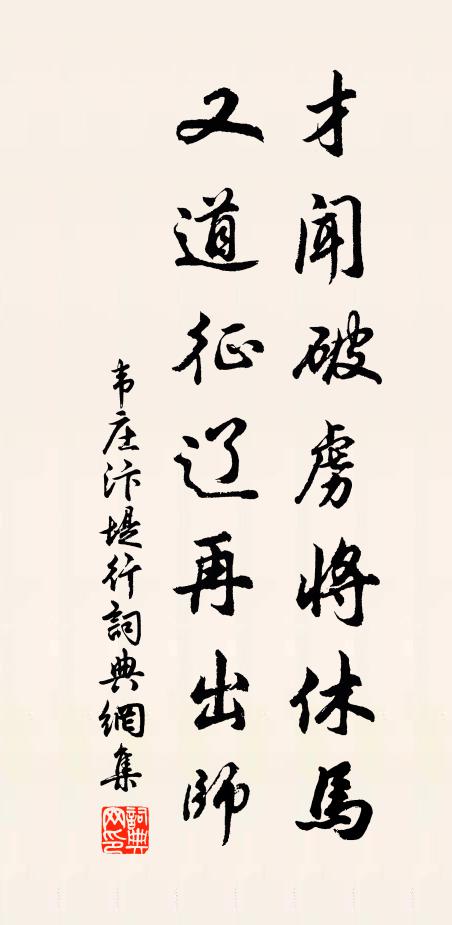 才闻破虏将休马
又道征辽再出师
韦庄汴堤行詞典網集
詞典
网印